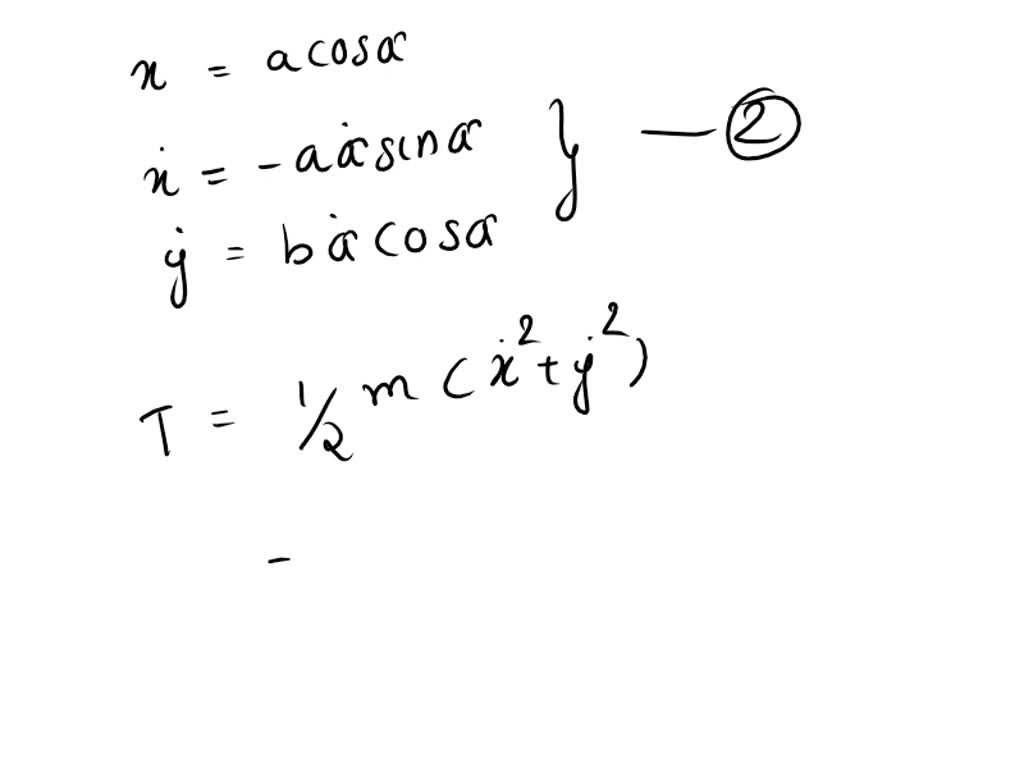 x = a cos α
ẋ = - a α̇ sin α
ẏ = b α̇ cos α } — ②
T = 1/2 m ( ẋ² + ẏ² )
-